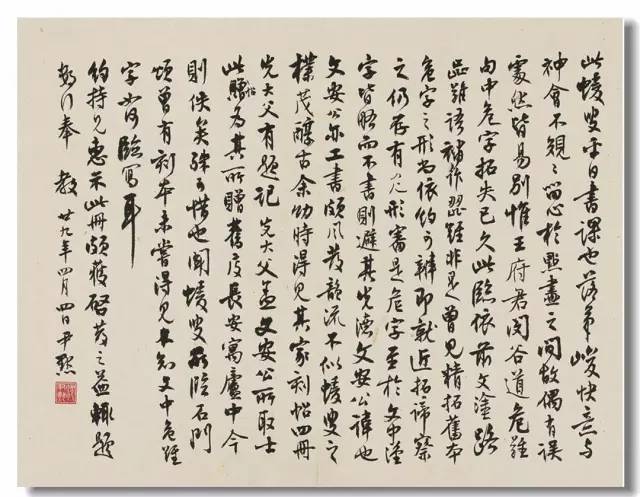 此蝯叟平日書課也落筆峻快意与
神會不規規留心於點畫之間故偶有誤
處然皆易別惟王府君閔谷道危難
句中危字拓失已久此臨依前文塗路
歰難語補作歰難非是曾見精拓舊本
危字之形尚依約可辨即就近拓諦察
之仍存有㔾形審是危字至於文中漢
字皆略而不書則避其先德文安公諱也
文安公亦工書頗風發韻流不似蝯叟之
樸茂醇古余幼時得見其家刻帖四冊
先大父有題記 先大父盖文安公所取士
此帖為其所贈舊庋長安寓廬中今
則佚矣殊可惜也聞蝯叟所臨石門
頌曾有刻本未嘗得見不知文中危難
字如何臨寫耳
約持兄惠示此冊頗獲啓發之益輒題
數行奉 教 廿九年四月四日尹默